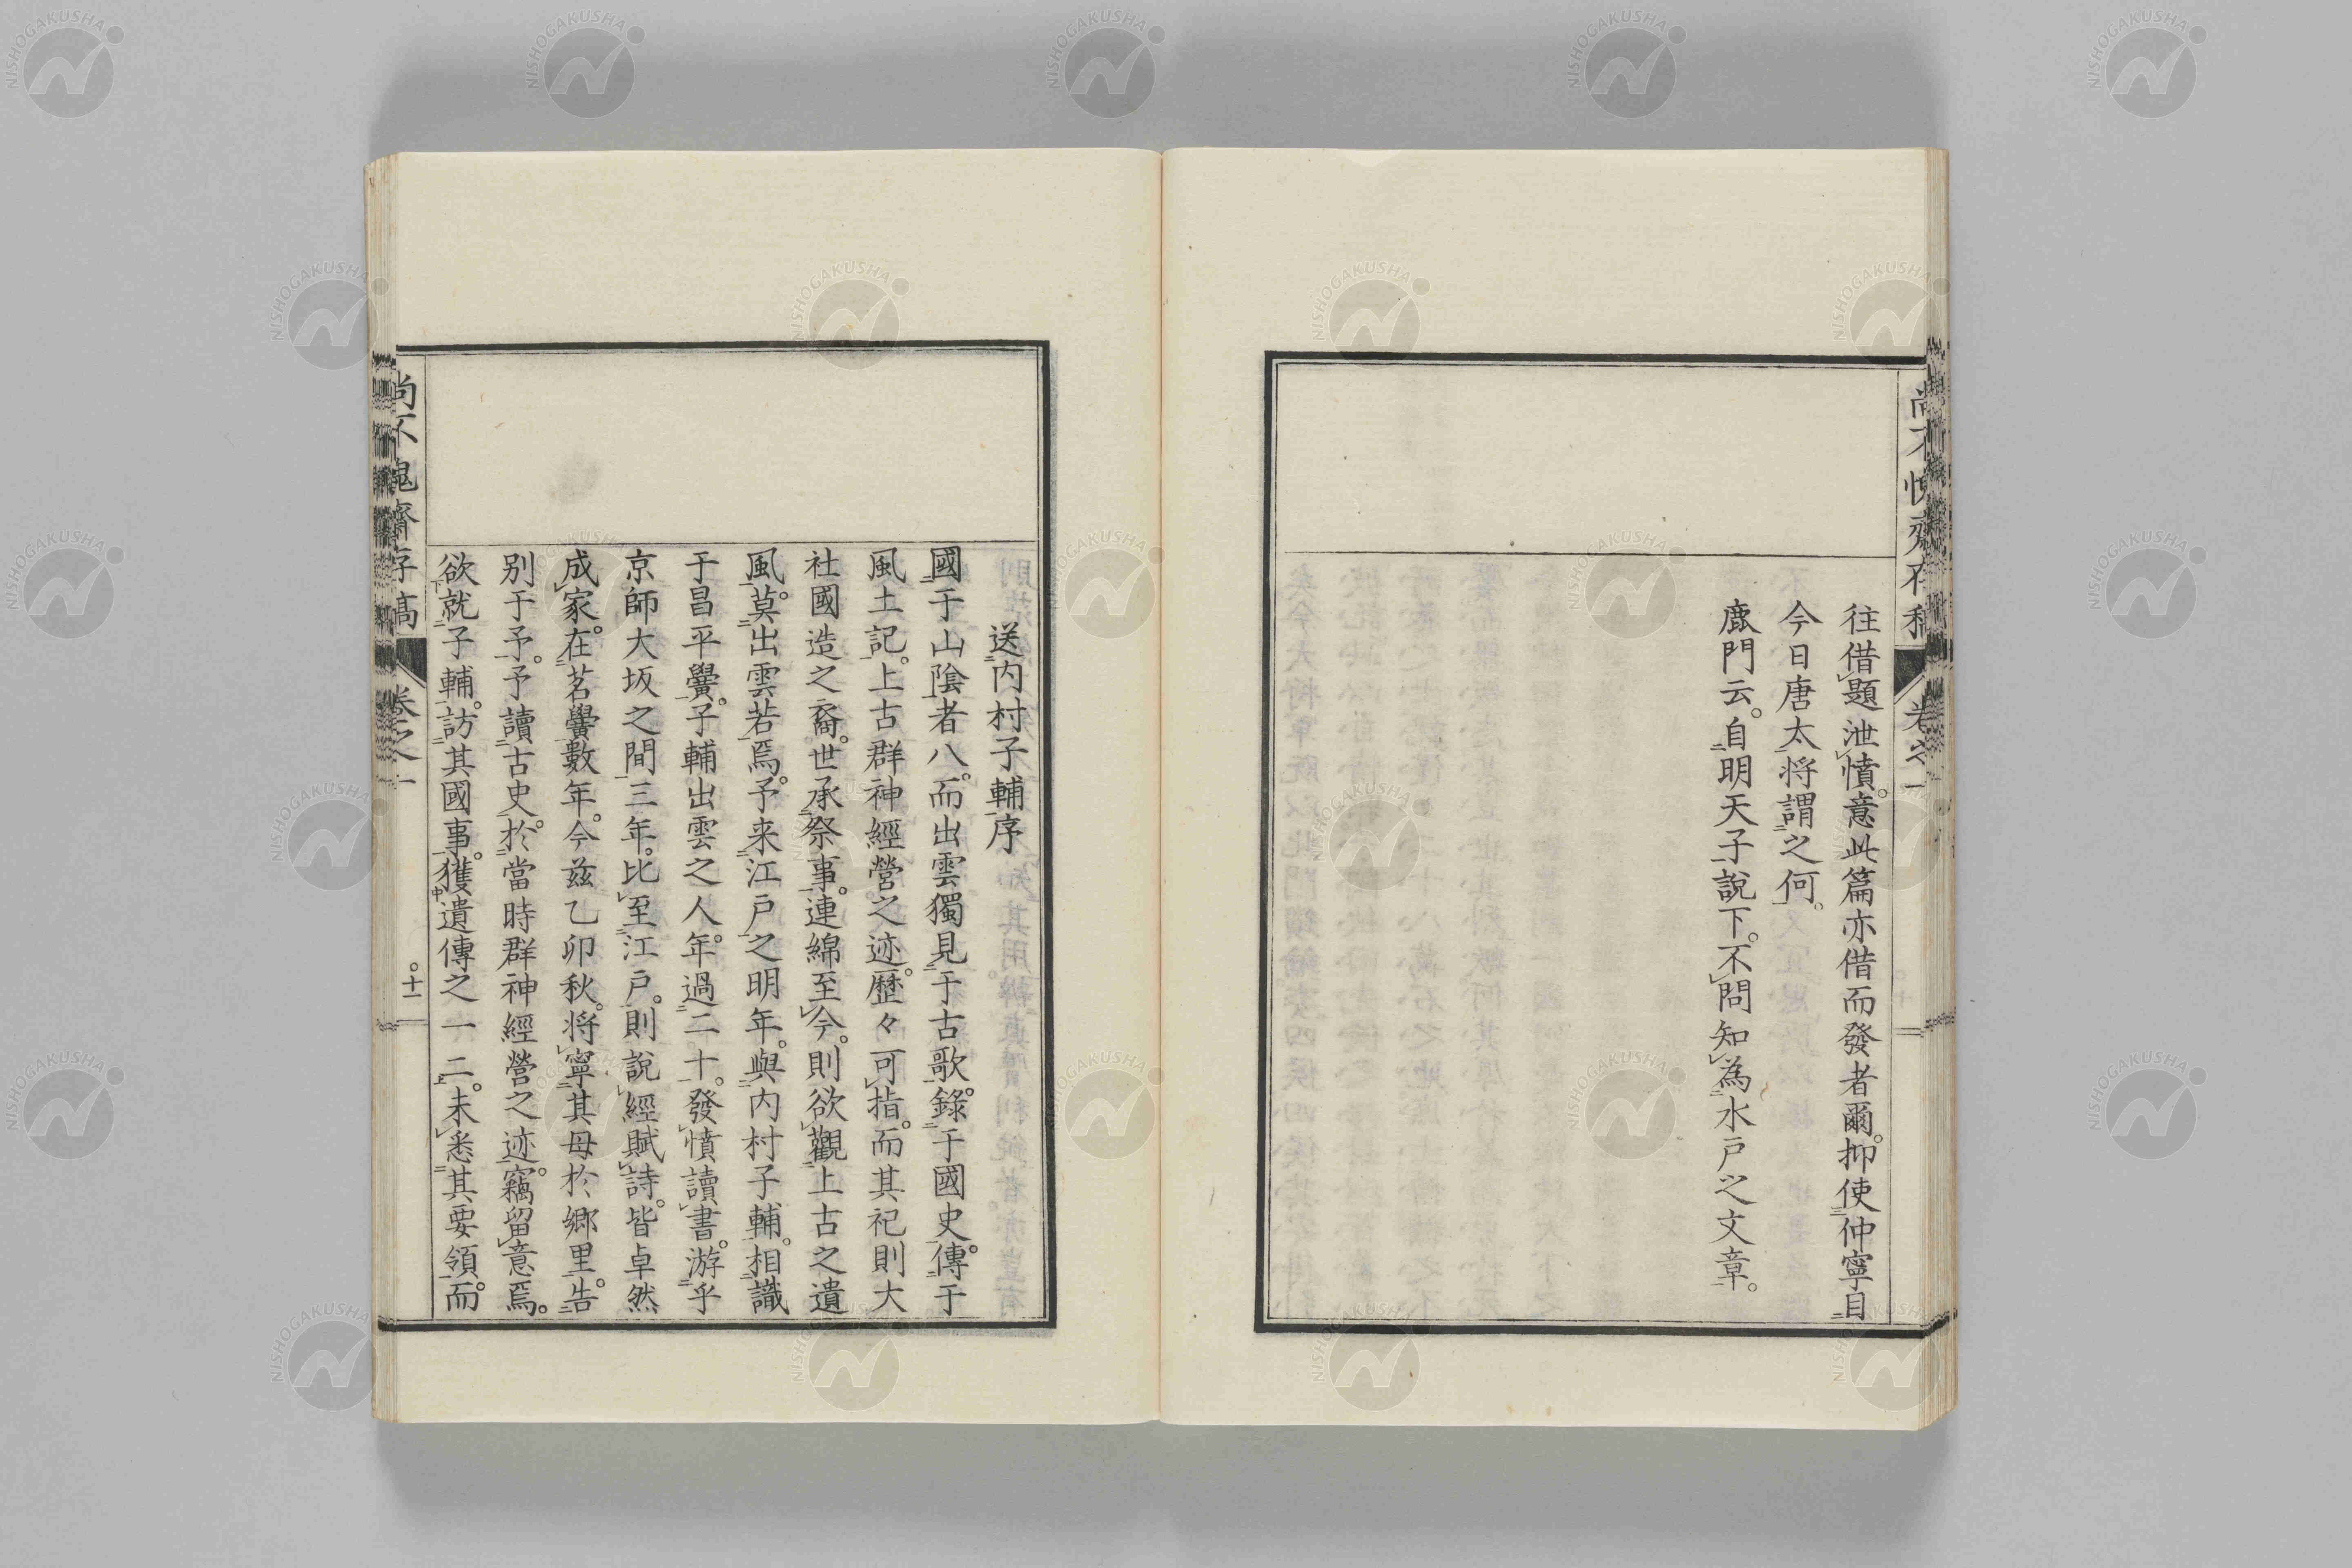 往借題泄憤。意此篇亦借而發者爾。抑使仲寧目
今日唐太将謂之何。
鹿門云。自明天子說下。不問知為水戸之文章。
送内村子輔序
國于山陰者八。而出雲獨見于古歌。錄于國史。傳于
風土記。上古群神經營之迹。歴々可指。而其祀則大
社國造之裔。世承祭事。連綿至今。則欲觀上古之遺
風。莫出雲若焉。予来江戸之明年。與内村子輔。相識
于昌平黌。子輔出雲之人。年過二十。發憤讀書。游乎
京師大坂之間三年。比至江戸。則說經賦詩。皆卓然
成家。在茗黌數年。今茲乙卯秋。将寧其母於郷里。告
别于予。予讀古史。於當時群神經營之迹。竊留意焉。
欲就子輔。訪其國事。獲遺傳之一二。未悉其要領。而
尚不愧齋存稿 卷之一
十一
NISHOGAKUSHA